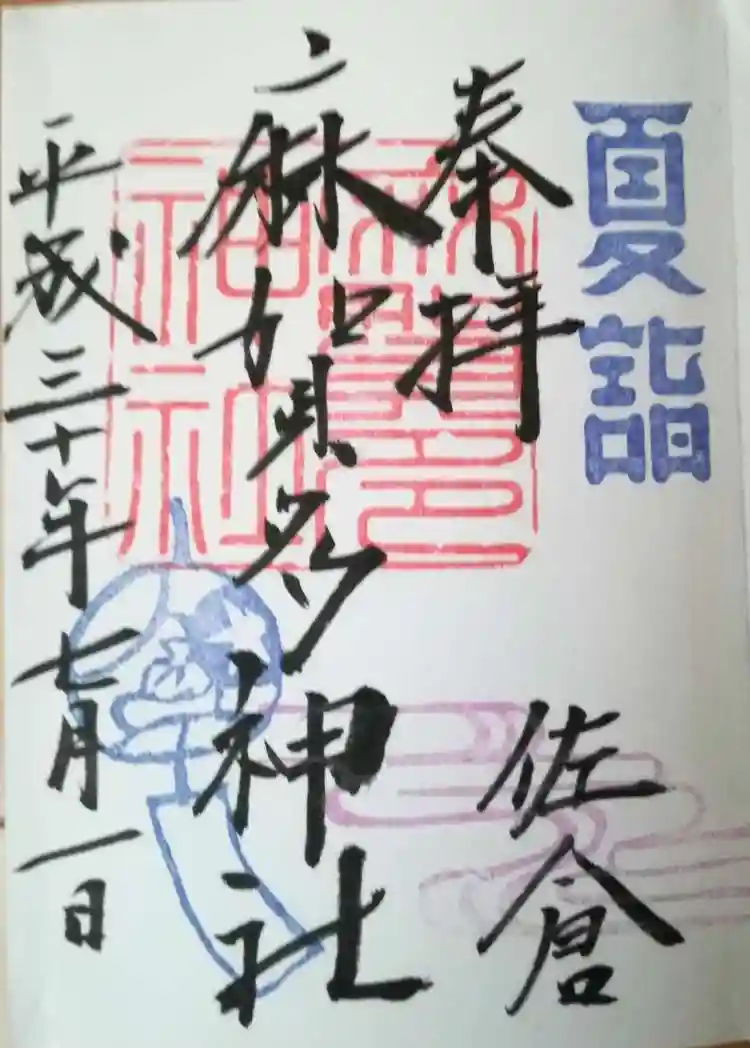 夏詣
奉拝
佐倉
麻賀多神社
麻賀多神社
平成三十年七月一日